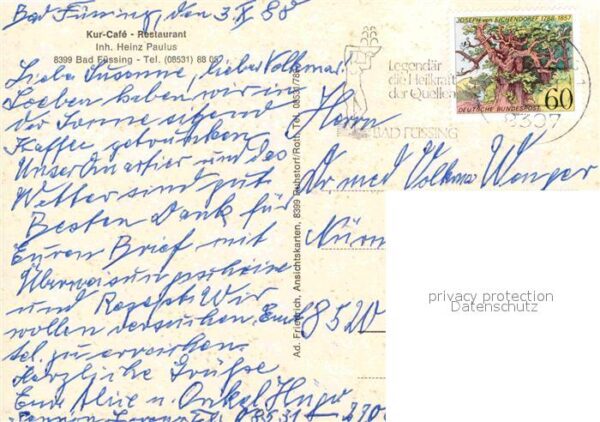 Bad Füssing, den 3. IX 88
Kur-Café - Restaurant
Inh. Heinz Paulus
8399 Bad Füssing - Tel. (08531) 88 08
Liebe Susanne, lieber Volkmar!
Soeben haben wir in
der Sonne sitzend
Kaffee getrunken.
Unser Quartier und das
Wetter sind gut
Besten Dank für
Euren Brief mit
Überweisungsscheine
und Rezept. Wir
wollen versuchen Euch
tel. zu erreichen.
Herzliche Grüße
Eure Alice u. Onkel Hugo
Pension 08531
Ad. Friedrich, Ansichtskarten, 8399 Ruhstorf/Rott, Tel. 08531/78
Legendär
die Heilkraft
der Quellen
BAD FÜSSING
JOSEPH VON EICHENDORFF 1788-1857
DEUTSCHE BUNDESPOST 60
Herrn
Dr med Volkmar Wenger
8520
privacy protection
Datenschutz